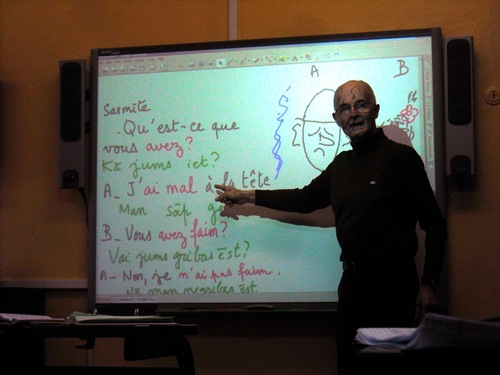 A B
Sarmīte
. Qu'est-ce que
vous avez?
Kā jums iet?
A_ J'ai mal à la tête
Man sāp
B_ Vous avez faim?
Vai jums gribas ēst?
A- Non, je n'ai pas faim.
Nē man negribas ēst.